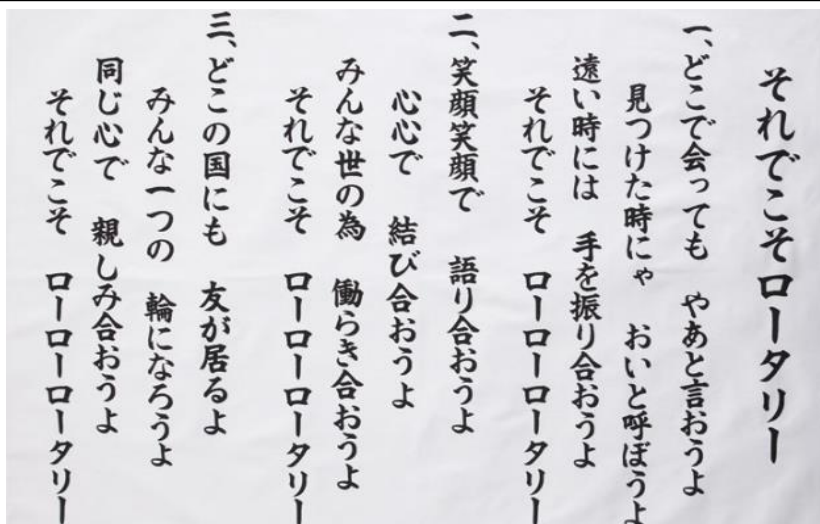 それでこそロータリー
一、どこで会っても　やあと言おうよ
見つけた時にゃ　おいと呼ぼうよ
遠い時には　手を振り合おうよ
それでこそ　ローローロータリー
二、笑顔笑顔で　語り合おうよ
心心で　結び合おうよ
みんな世の為　働らき合おうよ
それでこそ　ローローロータリー
三、どこの国にも　友が居るよ
みんな一つの　輪になろうよ
同じ心で　親しみ合おうよ
それでこそ　ローローロータリー